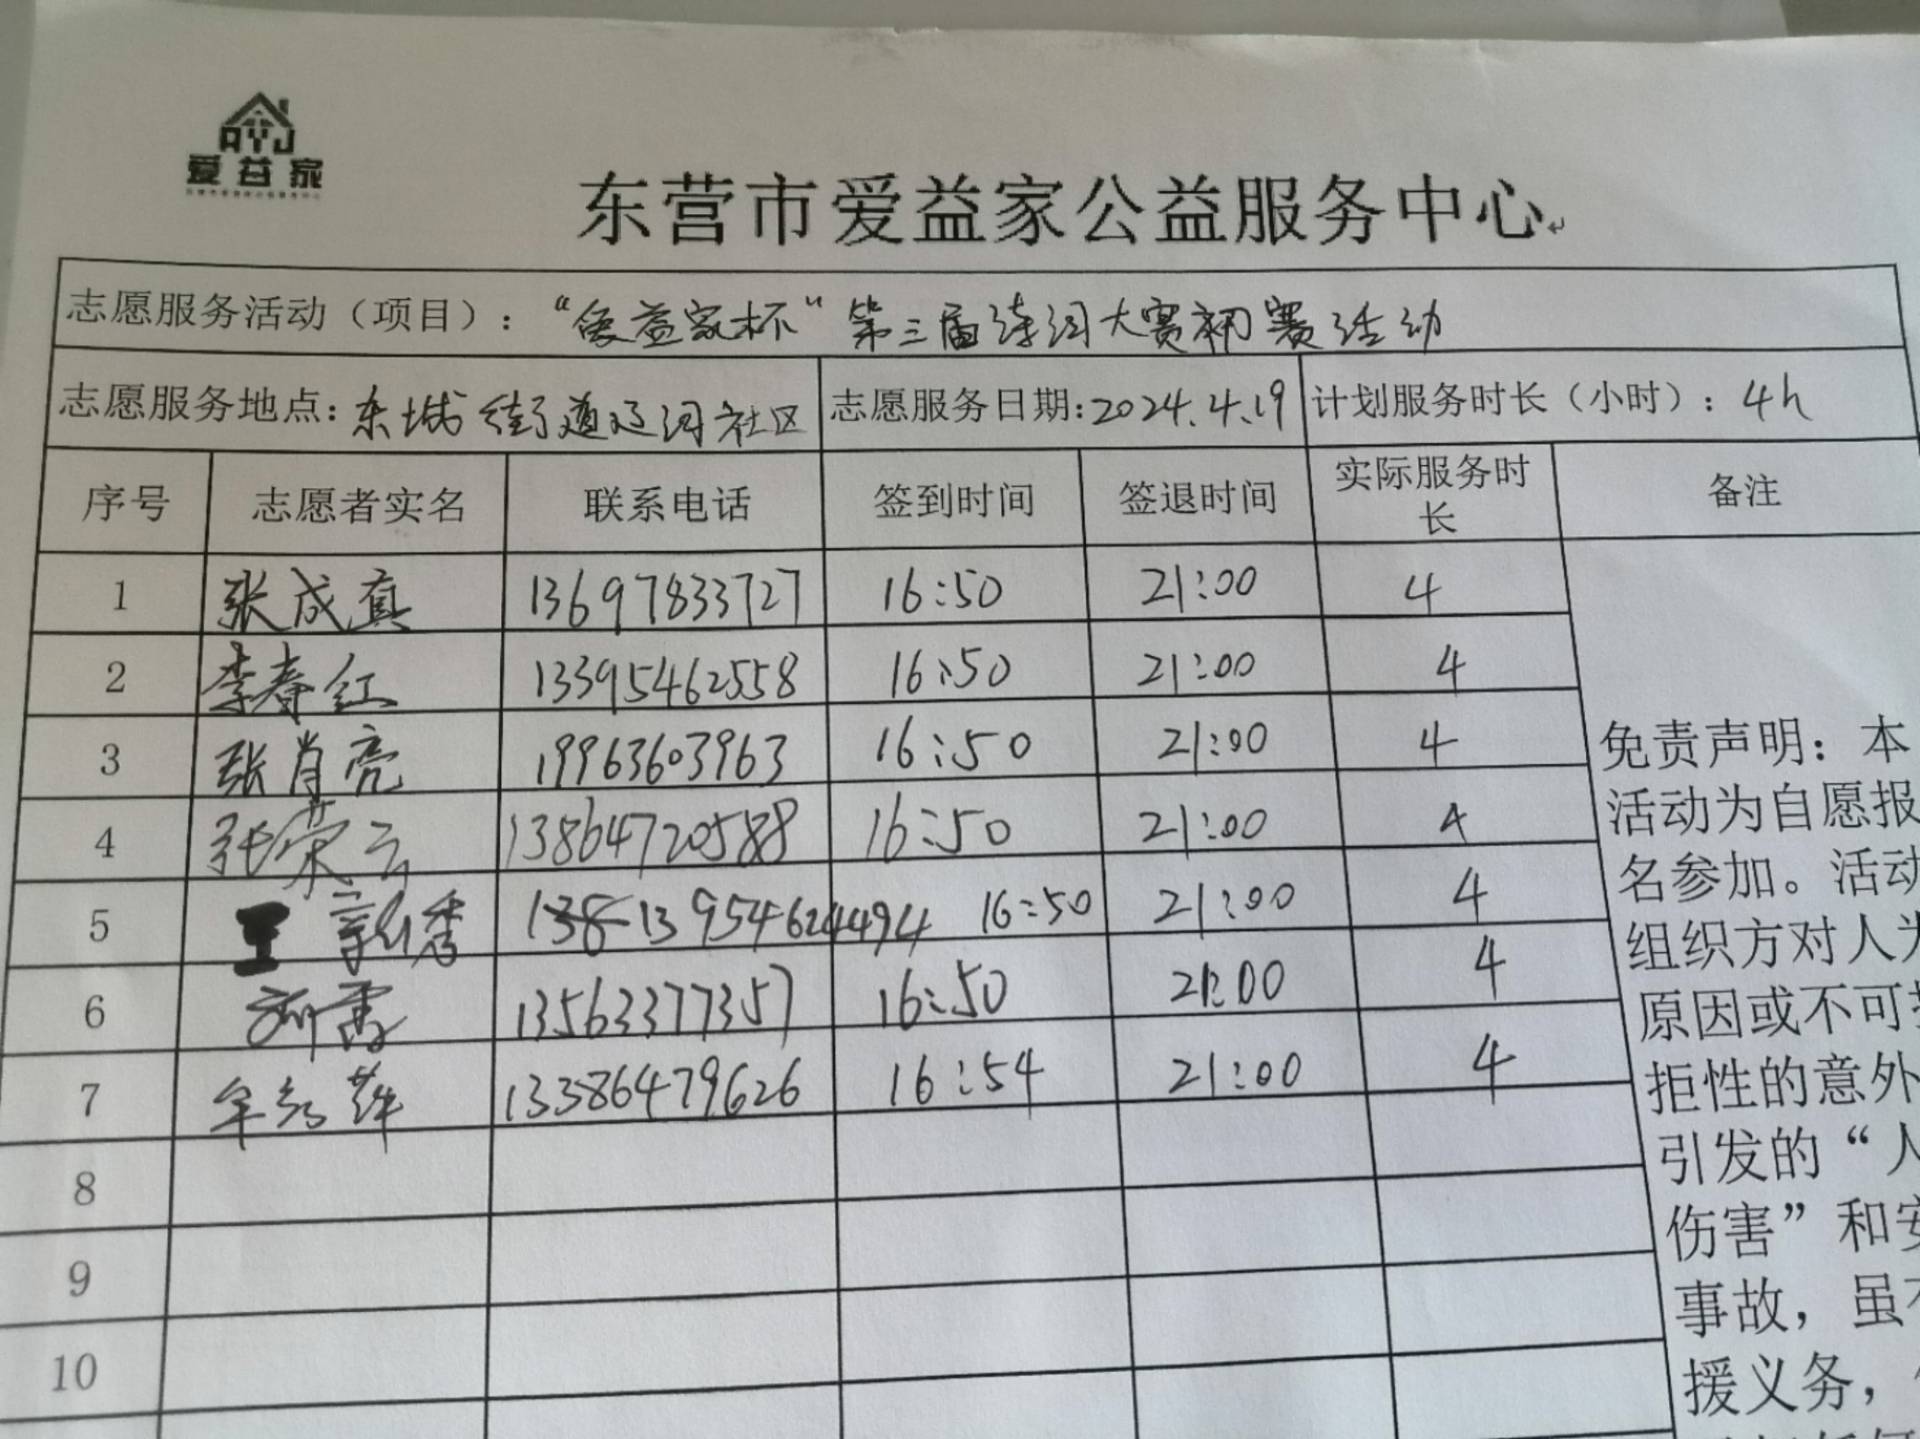 AYJ
爱益家
东营市爱益家公益服务中心
志愿服务活动（项目）：“爱益家杯”第三届诗词大赛初赛活动
志愿服务地点：东城街道辽河社区 志愿服务日期：2024.4.19 计划服务时长（小时）：4h
序号 志愿者实名 联系电话 签到时间 签退时间 实际服务时长 备注
1 张成真 13697833727 16:50 21:00 4
2 李春红 13395462558 16:50 21:00 4
3 张肖亮 19963603963 16:50 21:00 4
4 张荣云 13864720588 16:50 21:00 4
5 王 秀 13954624494 16:50 21:00 4
6 13563377357 16:50 21:00 4
7 牟 萍 13386479626 16:54 21:00 4
8
9
10
免责声明：本
活动为自愿报
名参加。活动
组织方对人为
原因或不可抗
拒性的意外
引发的“人
伤害”和安
事故，虽不
援义务，